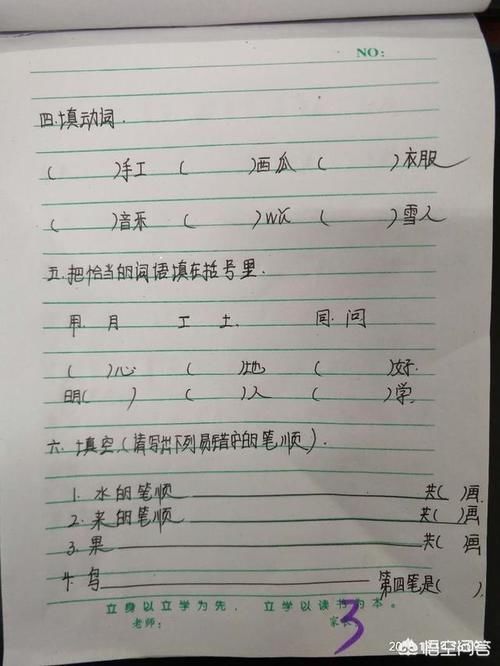 NO:
四.填动词.
(    )手工  (    )西瓜  (    )衣服
(    )音乐  (    )  (    )雪人
五.把恰当的词语填在括号里.
用 月  工 土  同 问
(    )心  (    )地  (    )好
明(    )  (    )人  (    )学
六.填空(请写出下列易错字的笔顺).
1.水的笔顺 共(  )画
2.来的笔顺 共(  )画
3.果 共(  )画
4.鸟 第四笔是(  ).
立身以立学为先, 立学以读书为本。
老师: 家长:
3
悟空问答